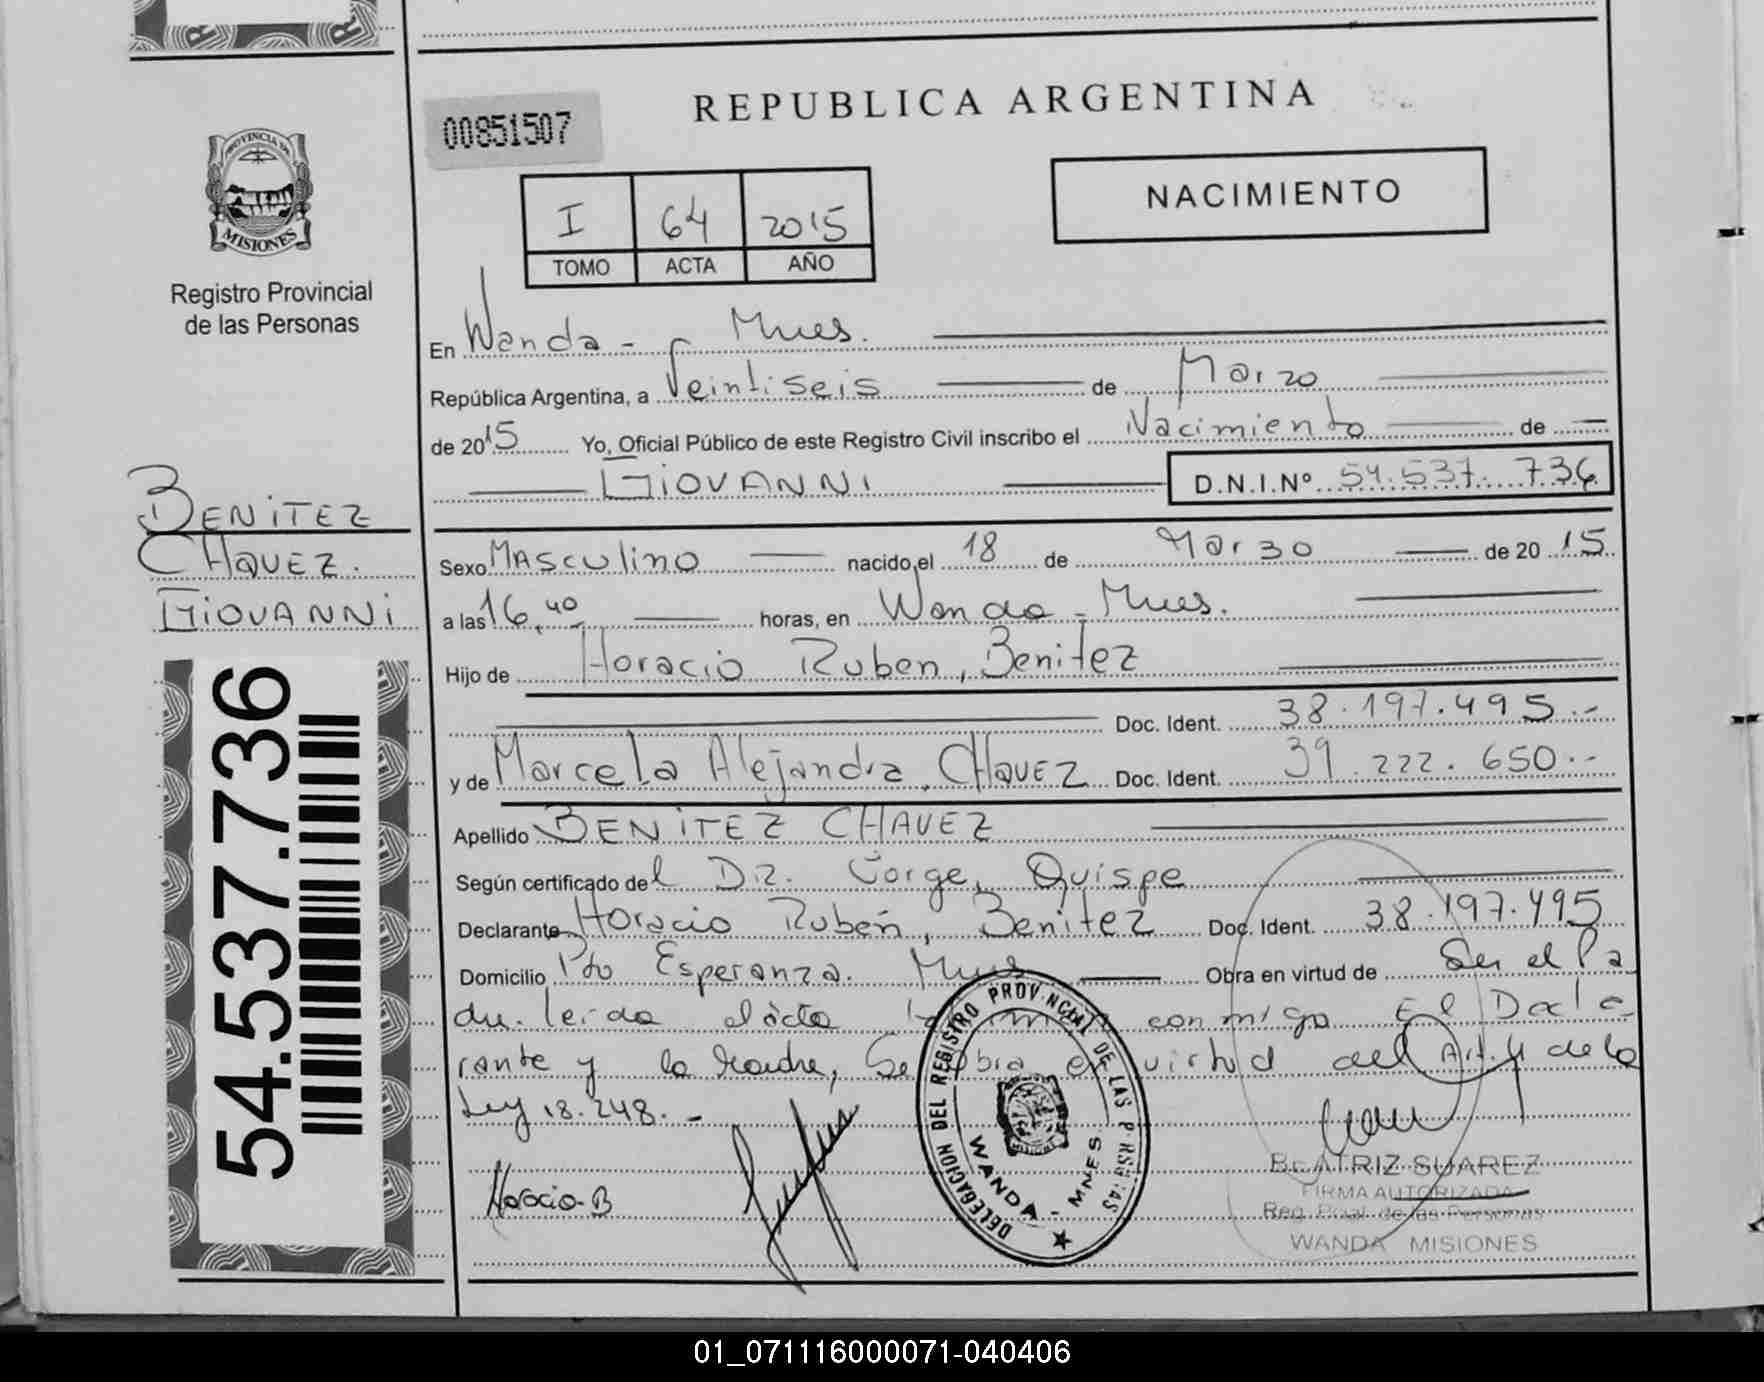 REPUBLICA ARGENTINA
00851507
NACIMIENTO
I 64 2015
TOMO ACTA AÑO
PROVINCIA DE
MISIONES
Registro Provincial
de las Personas
En Wanda - Mnes.
República Argentina, a Veintiseis de Marzo
de 2015 Yo, Oficial Público de este Registro Civil inscribo el Nacimiento de
GIOVANNI D.N.I.Nº 54.537.736
BENITEZ
CHAVEZ.
GIOVANNI
54.537.736
Sexo Masculino nacido el 18 de Marzo de 2015
a las 16,40 horas, en Wanda - Mnes.
Hijo de Horacio Ruben, Benitez
Doc. Ident. 38.197.495.-
y de Marcela Alejandra, Chavez Doc. Ident. 39.222.650.-
Apellido BENITEZ CHAVEZ
Según certificado del Dr. Jorge, Quispe
Declarante Horacio Rubén, Benitez Doc. Ident. 38.197.495
Domicilio Pto Esperanza. Mnes Obra en virtud de Ser el Pa
dre. leida el acta la conmigo El Decla
rante y la Madre, Se obra en virtud del Art. 4 de la
Ley 18.248.-
Horacio-B
DELEGACION DEL REGISTRO PROVINCIAL DE LAS PERSONAS
WANDA - MNES.
BEATRIZ SUAREZ
FIRMA AUTORIZADA
Reg. Pcial. de las Personas
WANDA MISIONES
01_071116000071-040406